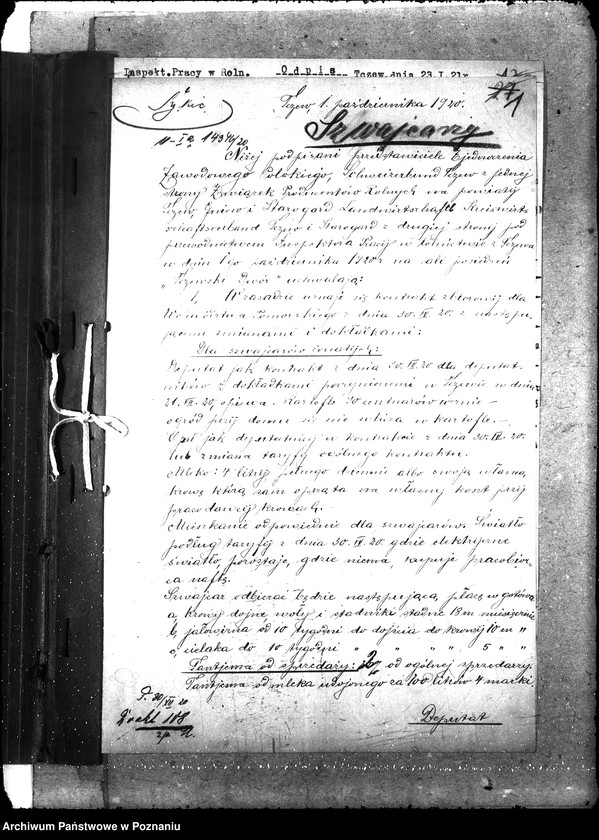 Inspekt. Pracy w Roln. Odpis Tczew, dnia 23.I.21r
Tczew, 1. października 1920.
1
Szwajcarzy
14346/20
Niżej podpisani przedstawiciele Zjednoczenia
Zawodowego Polskiego, Schweizerbund Tczew z jednej
strony Związek Producentów Rolnych na powiaty
Tczew, Gniew i Starogard Landwirtschaftl.
Tczew i Starogard z drugiej strony pod
przewodnictwem Inspektora Pracy w Rolnictwie z Tczewa
w dniu 1go października 1920 r na sali posiedzeń
„Tczewski Dwór" uchwalają:
1. W zasadzie uznaje się kontrakt zbiorowy dla
Województwa Pomorskiego z dnia 30. IV. 20. z następu-
jącemi zmianami i dokładkami:
Dla szwajcarów
Deputat jak kontrakt z dnia 30. IV. 20 dla deputat-
ników z dokładkami poczynionemi w Tczewie w dniu
21. VII. 20, opiewa. Kartofle 30 centnarów
ogród przy domu się nie wlicza w kartofle. —
Opał jak deputatnicy w kontrakcie z dnia 30. IV. 20.
lub zmiana taryfy ogólnego kontraktu.
Mleko: 4 litry pełnego dziennie albo swoją własną
krowę którą sam opłata na własny koszt przy
pracodawcy krowach.
Mieszkanie odpowiednie dla szwajcarów. Światło
podług taryfy z dnia 30. IV. 20 gdzie elektryczne
światło, pozostaje, gdzie niema, kupuje pracobior-
ca naftę.
Szwajcar odbierać będzie następującą płacę w gotówce
a, krowy dojne woły i stadniki stadne 18 m miesięcznie
b, jałowizna od 10 tygodni do dojścia do krowy 10 m "
c, cielaka do 10 tygodni " " " " 5 " "
Tantjema od sprzedaży: 2% od ogólnej sprzedaży.
Tantjema od mleka udojonego za 100 litrów 4 marki
Deputat
20/XII 20
108
Archiwum Państwowe w Poznaniu